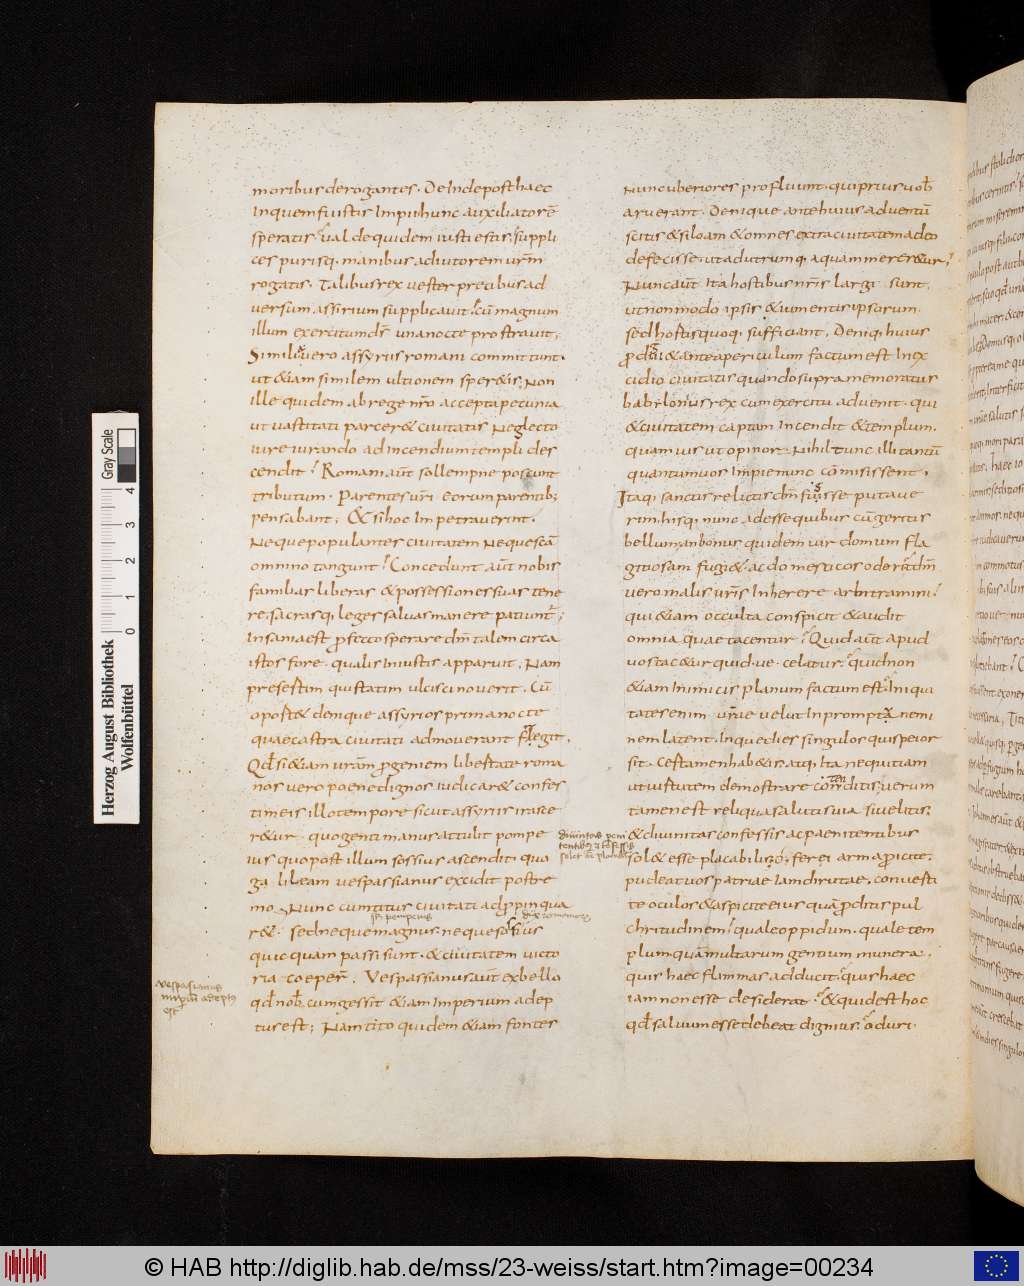 moribus derogantes. Deinde post haec
In quem fuistis Impii hunc auxiliatorē
speratis. Valde quidem iusti estis, suppli
ces purisq; manibus adiutorem urm̄
rogatis. Talibus rex uester precibus ad
uersum assirium supplicauit. cū magnum
illum exercitum ds̄ una nocte prostrauit,
Similia uero assyriis romani committunt.
ut &iam similem ultionem sper&is. Non
ille quidem ab rege nr̄o accepta pecunia
ut uastitati parcer& ciuitatis Neglecto
iure iurando ad incendium templi des
cendit. Romani aūt sollempne poscunt
tributum. Parentes ur̄i eorum parentib;
pensabant. & si hoc Impetrauerint.
Neque populantes ciuitatem Neque scā
omnino tangunt. Concedunt aūt nobis
familias liberas & possessiones suas tene
re, sacrasq; leges saluas manere patiunt̄;
Insania est profecto sperare dm̄ talem circa
istos fore. qualis Iniustis apparuit, Nam
presestim qui statim ulcisci nouerit. Cū
opost& denique assyrios prima nocte
quae castra ciuitati admouerant fregit.
Qd̄ si &iam urām progeniem libestate roma
nos uero poene dignos iudicar& confes
tim eis illo tempore sicut assyriis irasce
r&ur. quo genti manus attulit pompe
ius quo post illum sossius ascendit. quo
galileam uespassianus excidit postre
mo, Nunc cum titus ciuitati adpropinqua
r&. sed neque magnus. neque sossius
quic quam passi sunt. & ciuitatem uicto
ria coeper̄. Vespassianus aūt ex bello
qd̄ nob̄ cum gessit &iam Imperium adep
tus est; Nam tito quidem &iam fontes
sꝫ pompeius
dux romanorū
Vespasianus
est
Nunc uberiores profluunt. qui prius uob̄
aruerant. Denique ante huius aduentū
scitis & siloam & omnes extra ciuitatem adeo
defecisse. ut ad utrumq; aquam mercr&ur.
Nunc aūt Ita hostibus nr̄is largi sunt,
ut non modo ipsis & iumentis ipsorum.
sed hostis quoq; sufficiant, Deniq; huius
prodigii & antea periculum factum est In ex
cidio ciuitatis quando supra memoratus
babilonius rex cum exercitu aduenit. qui
& ciuitatem captam Incendit & templum.
quam ius ut opinor. Nihil tunc illi tantū
quantum uos Impie nunc cōmisissent.
Itaq; sanctis relictis dm̄ fugisse putaue
rim, hisq; nunc adesse quibus cū geritis
bellum, an bonus quidem uir domum fla
gitiosam fugi&. ac domesticos oderit, dm̄
uero malis ur̄is Inherere arbitramini.
qui &iam occulta conspicit & audit
omnia quae tacentur. Quid aūt apud
uos tac&ur quid.ue. celatur. quid non
&iam Inimicis planum factum est. Iniqui
tates enim ur̄ae uelut In promptu nemi
nem latent. Inque dies singulos quis peior
sit. Cestamen hab&is atq; Ita nequitiam
ut uistutem demostrare contenditis, uerum
tamen est reliqua salutis uia si uelitis,
& diuinitas confessis ac paenitentibus
sol& esse placabilis, ó, ferei arma proicite.
pudeat uos patriae Iam dirutae, conuesti
te oculos & aspicite eius quā proditis pul
chritudinem. quale oppidum. quale tem
plum quā multarum gentium munera.
quis haec flammas adducit. quis haec
iam non esse desiderat. & quid est hoc
qd̄ saluum esse debeat dignius. o duri
Herzog August Bibliothek
Wolfenbüttel
Gray Scale
0 1 2 3 4
© HAB http://diglib.hab.de/mss/23-weiss/start.htm?image=00234